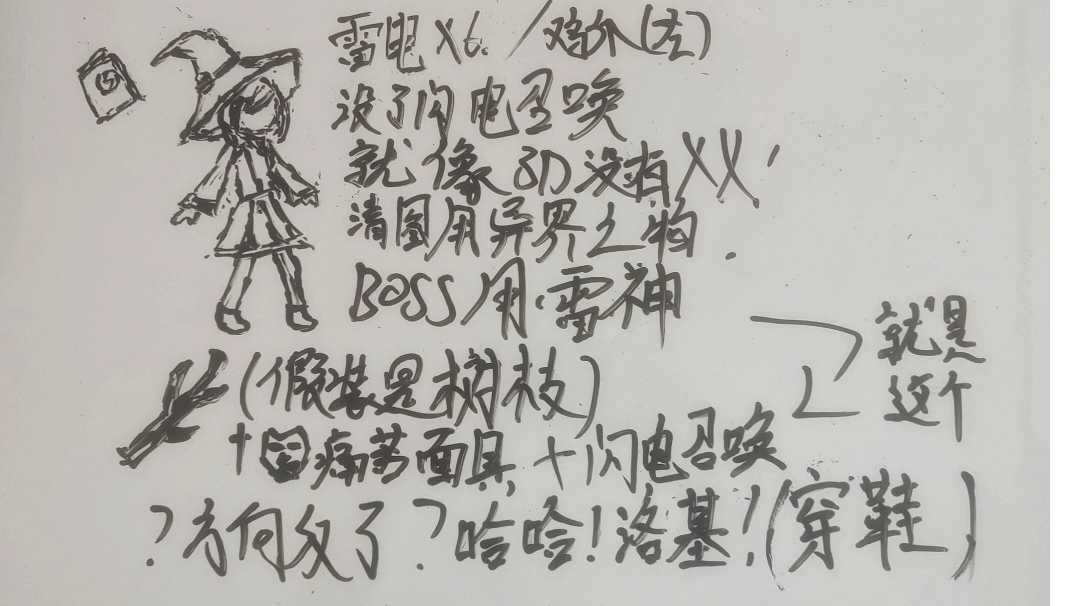 雷电X6. /鸡尔(左)
没了闪电召唤
就像3D没有XX,
清图用异界之物.
BOSS用.雷神
就是
这个
(假装是树枝)
+痛苦面具+闪电召唤
?方向反了?哈哈!洛基!(穿鞋)